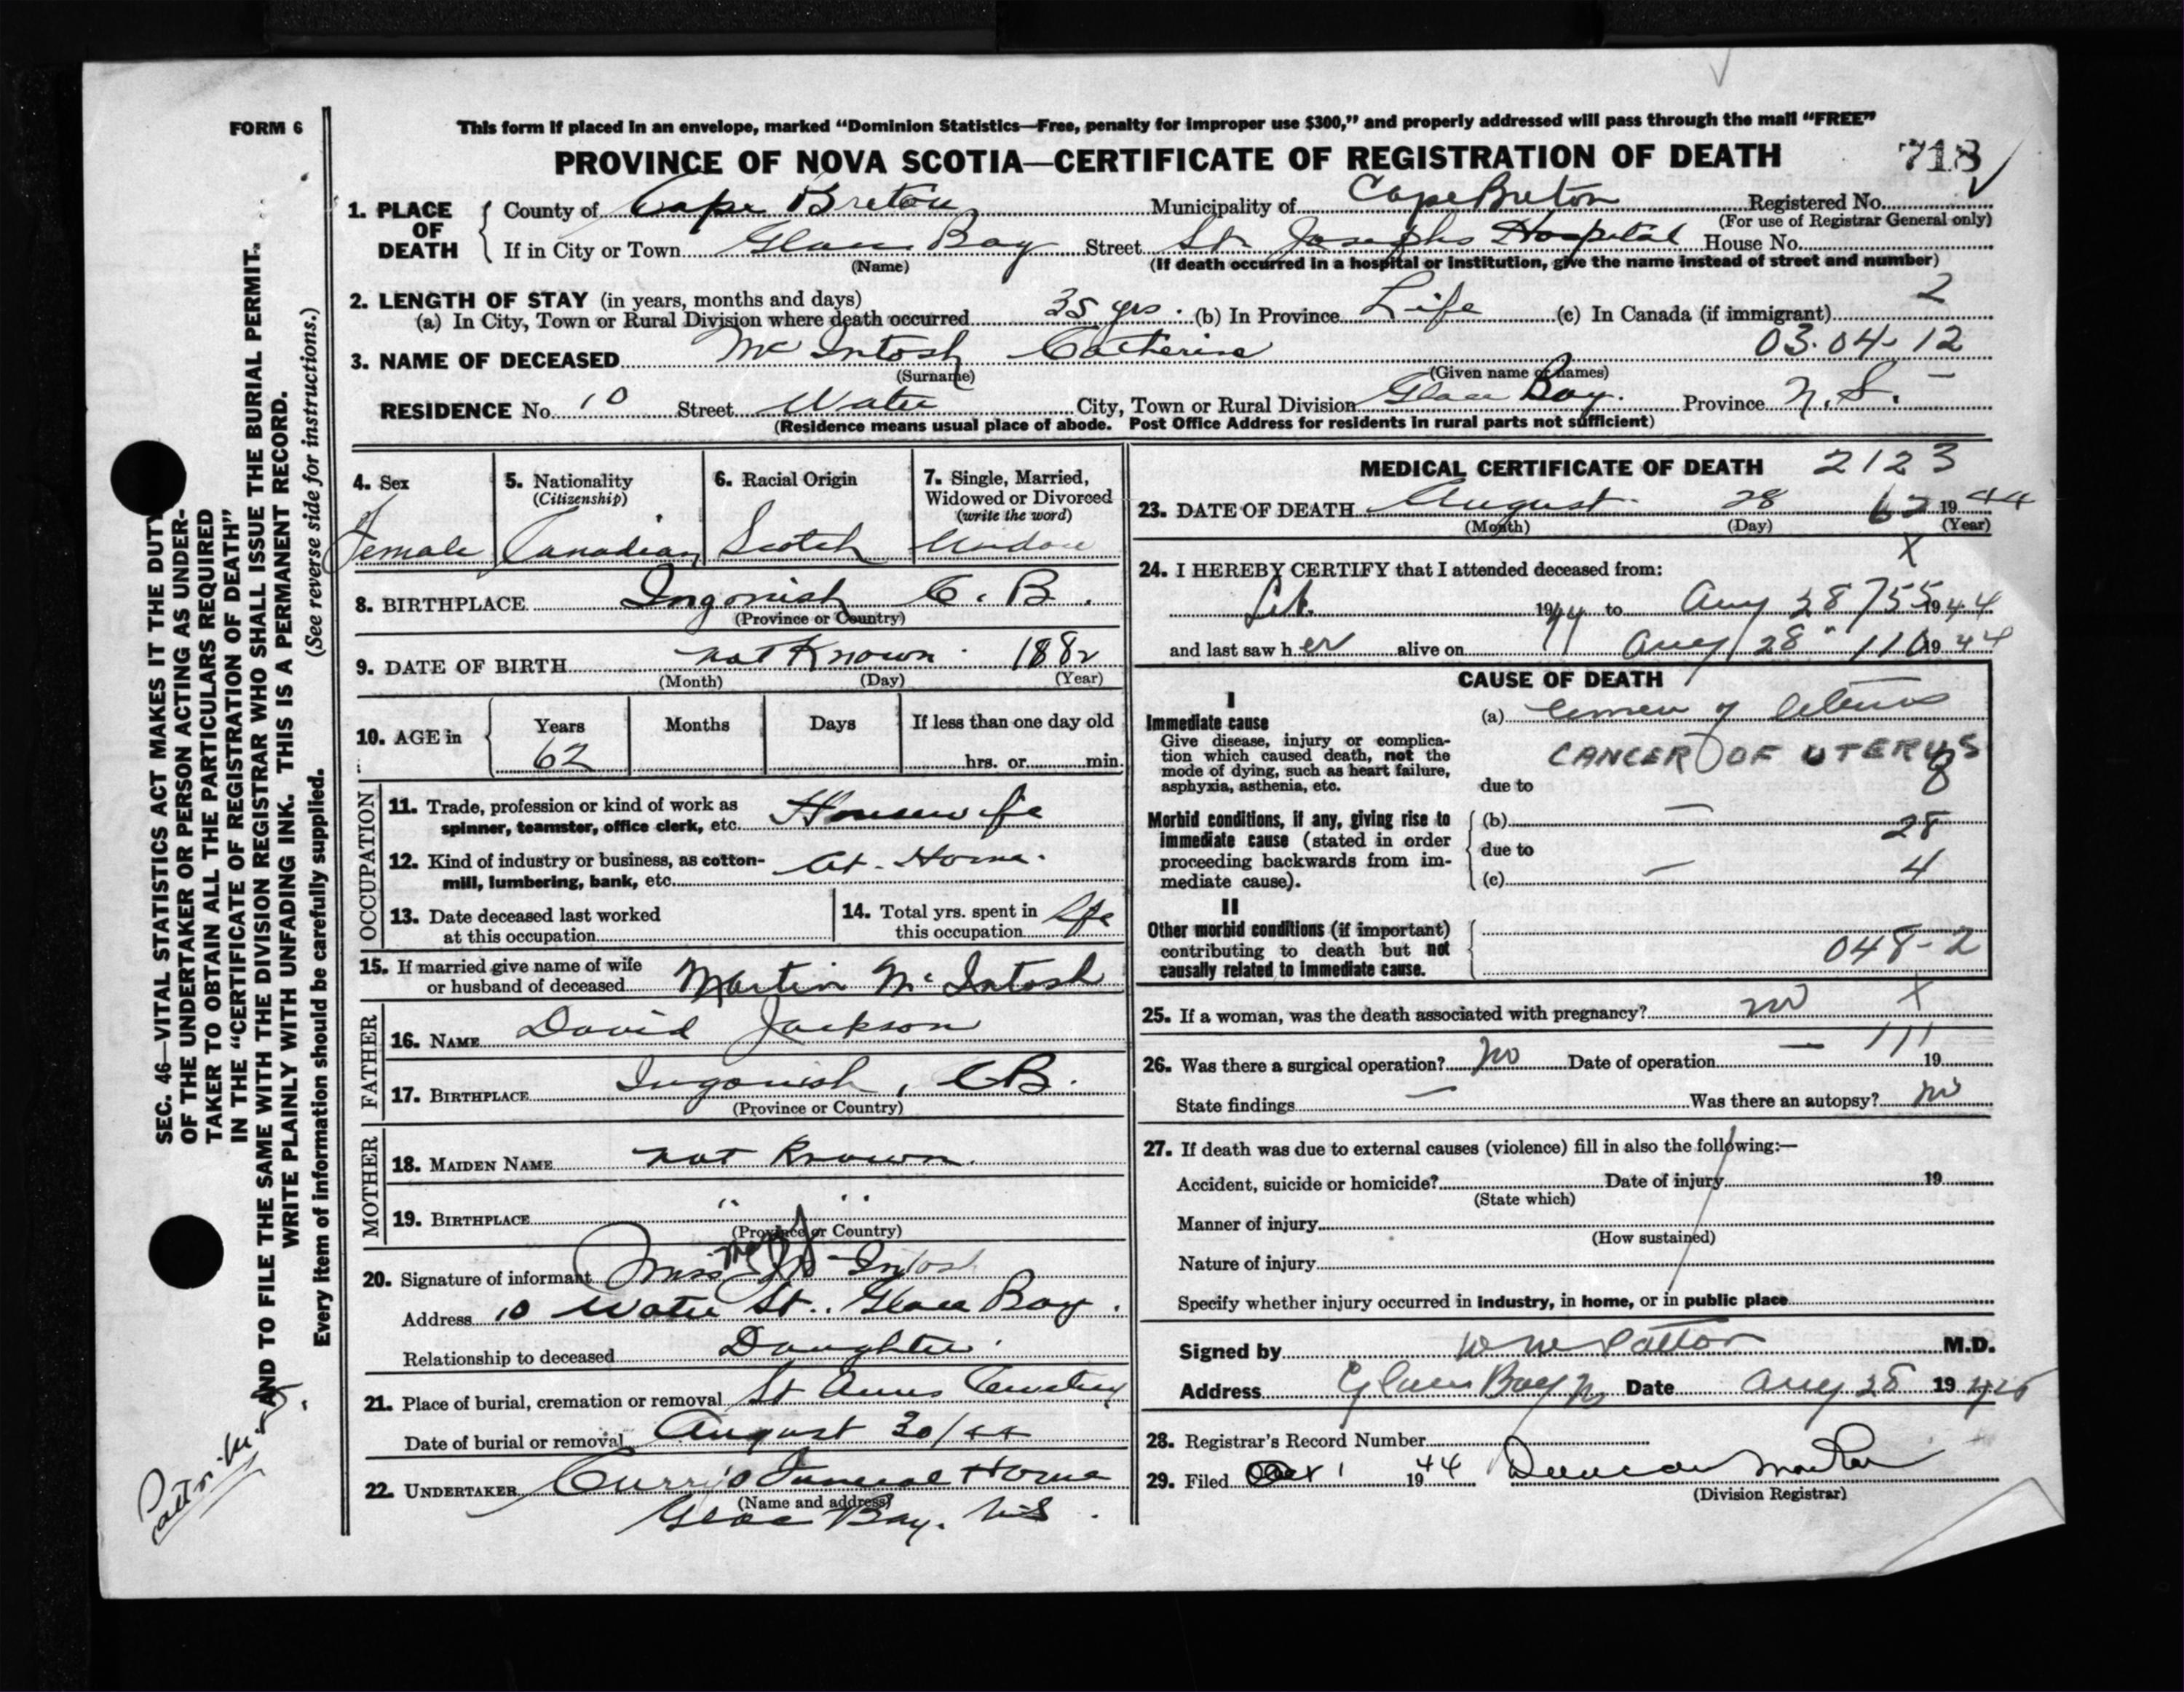 FORM 6
This form if placed in an envelope, marked “Dominion Statistics—Free, penalty for improper use $300,” and properly addressed will pass through the mail “FREE”
PROVINCE OF NOVA SCOTIA—CERTIFICATE OF REGISTRATION OF DEATH 718
1. PLACE OF DEATH
County of Cape Breton Municipality of Cape Breton Registered No.
(For use of Registrar General only)
If in City or Town Glace Bay Street St. Josephs Hospital House No.
(Name) (If death occurred in a hospital or institution, give the name instead of street and number)
2. LENGTH OF STAY (in years, months and days) 2
(a) In City, Town or Rural Division where death occurred 35 yrs. (b) In Province Life (c) In Canada (if immigrant)
3. NAME OF DECEASED McIntosh Catherine 03.04.12
(Surname) (Given name or names)
RESIDENCE No. 10 Street Water City, Town or Rural Division Glace Bay. Province N.S. —
(Residence means usual place of abode. Post Office Address for residents in rural parts not sufficient)
4. Sex
Female
5. Nationality
(Citizenship)
Canadian
6. Racial Origin
Scotch
7. Single, Married,
Widowed or Divorced
(write the word)
Widow
8. BIRTHPLACE Ingonish C.B.
(Province or Country)
9. DATE OF BIRTH not Known 1882
(Month) (Day) (Year)
10. AGE in
Years Months Days If less than one day old
62 hrs. or min.
OCCUPATION
11. Trade, profession or kind of work as
spinner, teamster, office clerk, etc. Housewife
12. Kind of industry or business, as cotton-
mill, lumbering, bank, etc. At Home.
13. Date deceased last worked
at this occupation
14. Total yrs. spent in
this occupation Life
15. If married give name of wife
or husband of deceased Martin McIntosh
FATHER
16. NAME David Jackson
17. BIRTHPLACE Ingonish, CB.
(Province or Country)
MOTHER
18. MAIDEN NAME not Known.
19. BIRTHPLACE " "
(Province or Country)
20. Signature of informant Miss McIntosh
Address 10 Water St. Glace Bay.
Relationship to deceased Daughter.
21. Place of burial, cremation or removal St Anns Cemetery
Date of burial or removal August 30/44
22. UNDERTAKER Curry's Funeral Home
(Name and address)
Glace Bay. N.S.
MEDICAL CERTIFICATE OF DEATH 2123
23. DATE OF DEATH August 28 62 1944
(Month) (Day) (Year)
X
24. I HEREBY CERTIFY that I attended deceased from:
1944 to Aug 28 755 1944
and last saw her alive on Aug 28 110 1944
CAUSE OF DEATH
I
Immediate cause
Give disease, injury or complica-
tion which caused death, not the
mode of dying, such as heart failure,
asphyxia, asthenia, etc.
(a) Cancer of Uterus
CANCER OF UTERUS
8
due to
Morbid conditions, if any, giving rise to
immediate cause (stated in order
proceeding backwards from im-
mediate cause).
(b) — 28
due to
(c) — 4
II
Other morbid conditions (if important)
contributing to death but not
causally related to immediate cause.
048-2
25. If a woman, was the death associated with pregnancy? no X
26. Was there a surgical operation? no Date of operation — 111 19
State findings — Was there an autopsy? no
27. If death was due to external causes (violence) fill in also the following:—
Accident, suicide or homicide? Date of injury 19
(State which)
Manner of injury
(How sustained)
Nature of injury
Specify whether injury occurred in industry, in home, or in public place
Signed by M.D.
Address Glace Bay Date Aug 28 19
28. Registrar's Record Number
29. Filed Oct 1 1944 Duncan MacRae
(Division Registrar)
SEC. 46—VITAL STATISTICS ACT MAKES IT THE DUTY
OF THE UNDERTAKER OR PERSON ACTING AS UNDER-
TAKER TO OBTAIN ALL THE PARTICULARS REQUIRED
IN THE “CERTIFICATE OF REGISTRATION OF DEATH”
AND TO FILE THE SAME WITH THE DIVISION REGISTRAR WHO SHALL ISSUE THE BURIAL PERMIT.
WRITE PLAINLY WITH UNFADING INK. THIS IS A PERMANENT RECORD.
Every item of information should be carefully supplied. (See reverse side for instructions.)